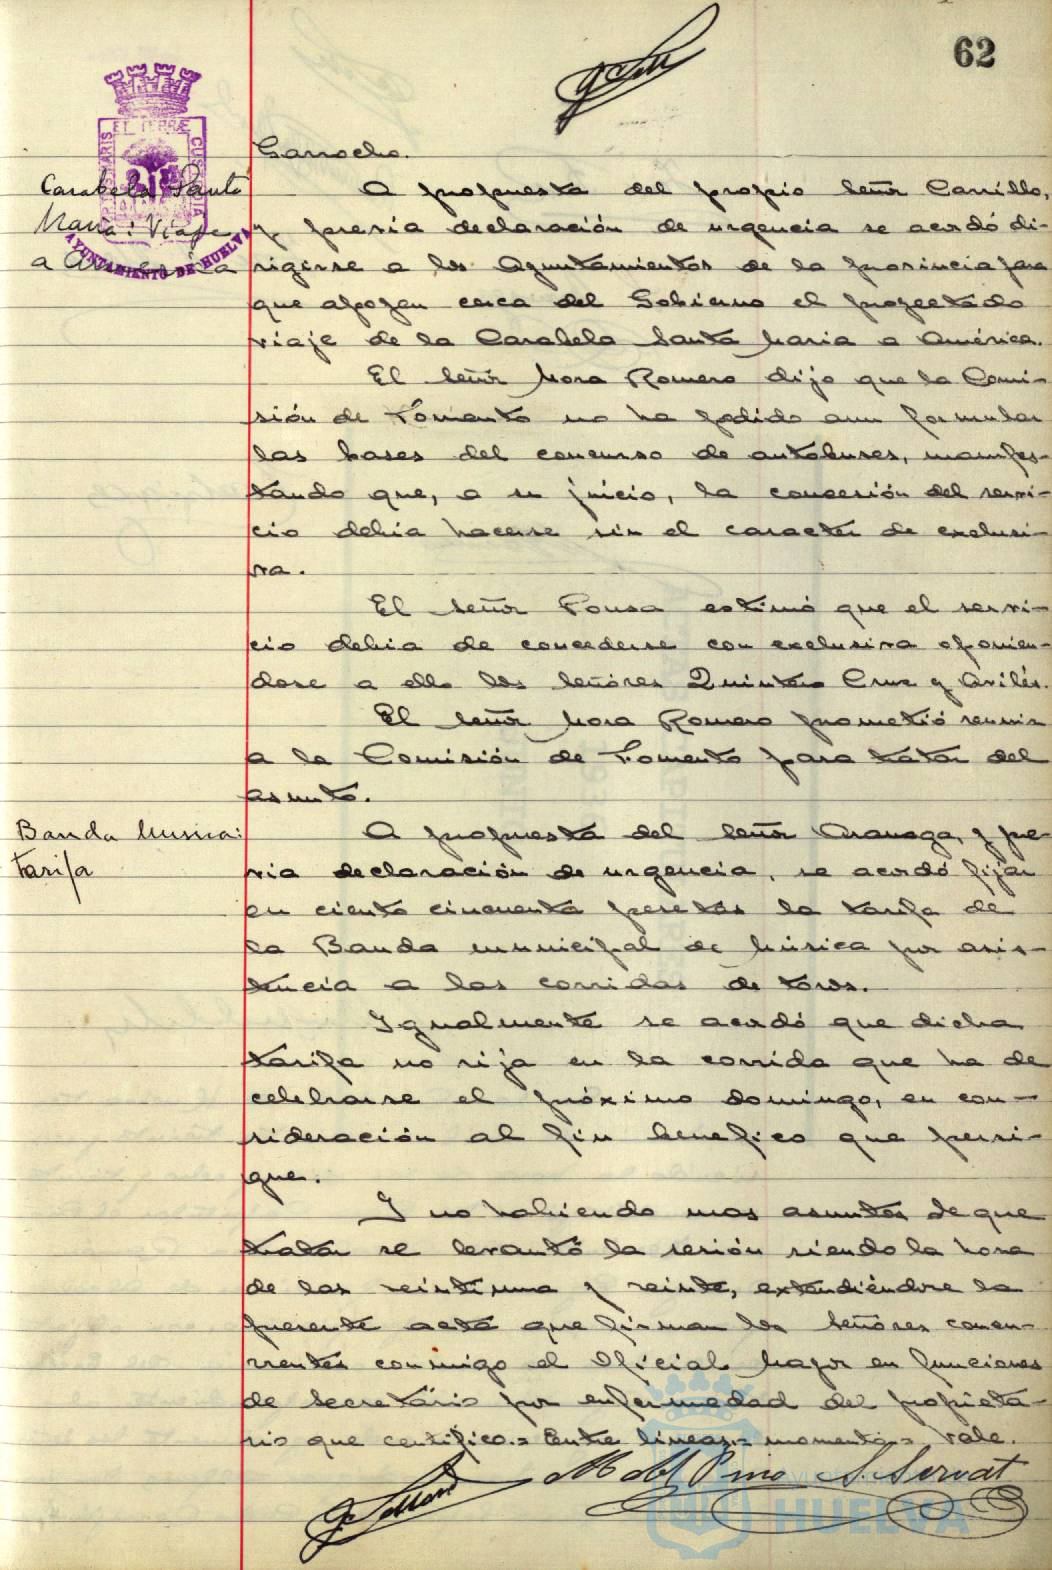 62
Garrocho.
Carabela Santa
Maria: Viaje
a America
PORTUS MARIS ET TERRÆ CUSTODIA
AYUNTAMIENTO DE HUELVA
A propuesta del propio Señor Carrillo,
y previa declaración de urgencia se acordó di-
rigirse a los Ayuntamientos de la provincia para
que apoyen cerca del Gobierno el proyectado
viaje de la Carabela Santa Maria a América.
El Señor Mora Romero dijo que la Comi-
sión de Fomento no ha podido aun formular
las bases del concurso de autobuses, manifes-
tando que, a su juicio, la concesión del servi-
cio debia hacerse sin el caracter de exclusi-
va.
El Señor Pousa estimó que el servi-
cio debia de concederse con exclusiva oponien-
dose a ello los Señores Quintero Cruz y Avilés.
El Señor Mora Romero prometió reunir
a la Comisión de Fomento para tratar del
asunto.
Banda Musica:
tarifa
A propuesta del Señor Aranaga, y pre-
via declaración de urgencia, se acordó fijar
en ciento cincuenta pesetas la tarifa de
la Banda municipal de Música por asis-
tencia a las corridas de toros.
Igualmente se acordó que dicha
tarifa no rija en la corrida que ha de
celebrarse el próximo domingo, en con-
sideración al fin benefico que persi-
gue.
Y no habiendo mas asuntos de que
tratar se levantó la sesión siendo la hora
de las veintiuna y veinte, extendiéndose la
presente acta que firman los Señores concu-
rrentes conmigo el Oficial Mayor en funciones
de Secretario por enfermedad del propieta-
rio que certifico.= Entre lineas.= momento.= Vale.
M. del Pino S. Servat
HUELVA